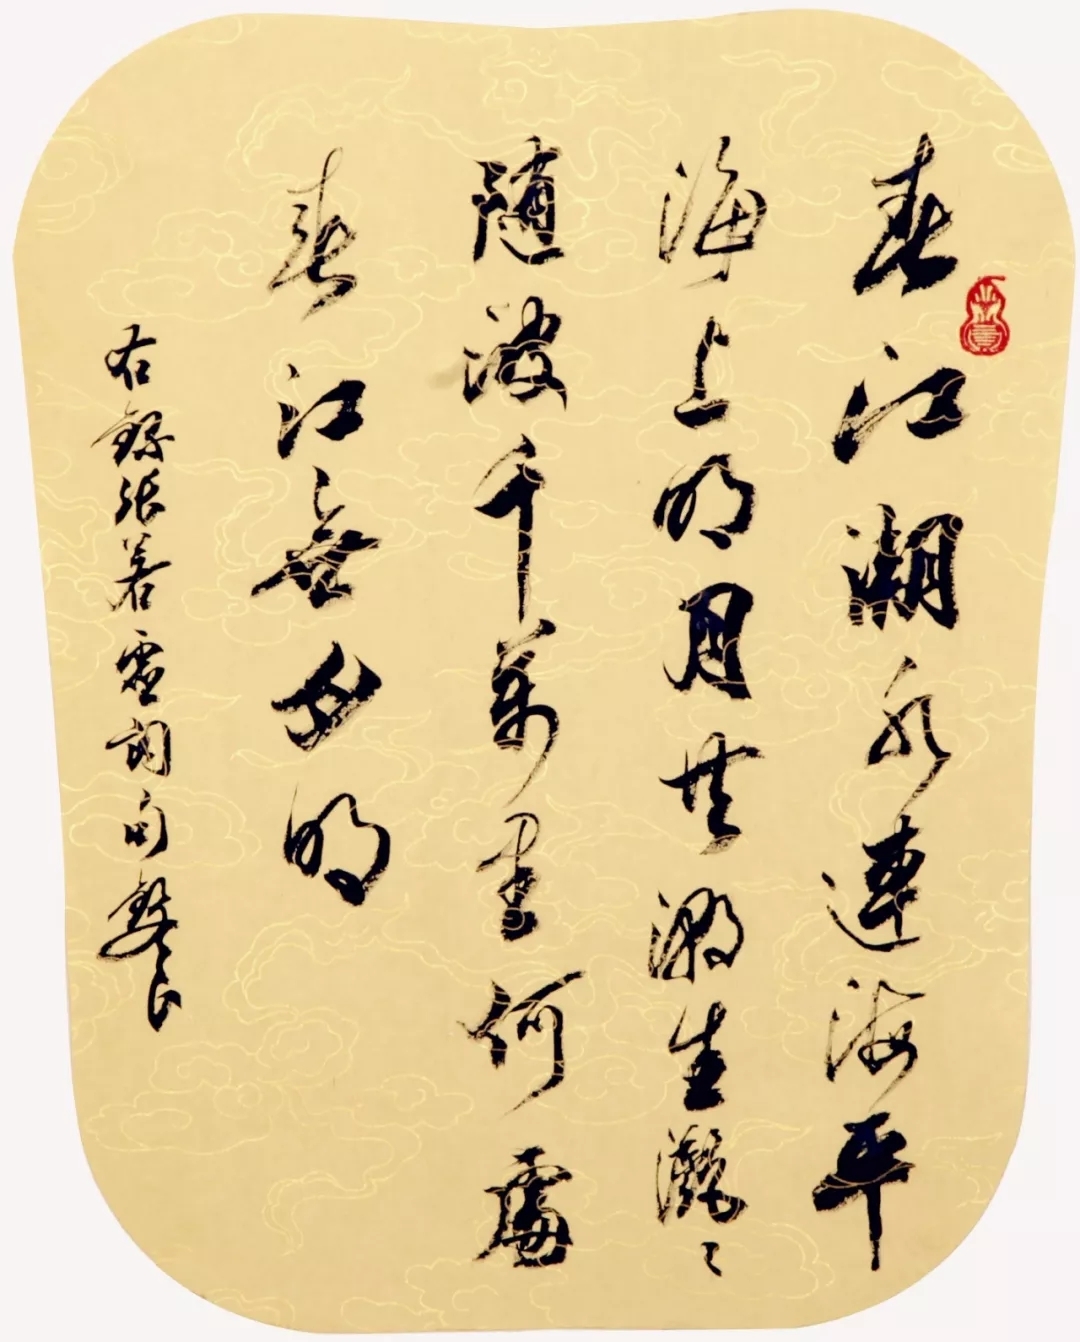 春江潮水連海平
海上明月共潮生灩〻
隨波千萬里何處
春江無月明
右錄張若虛詞句